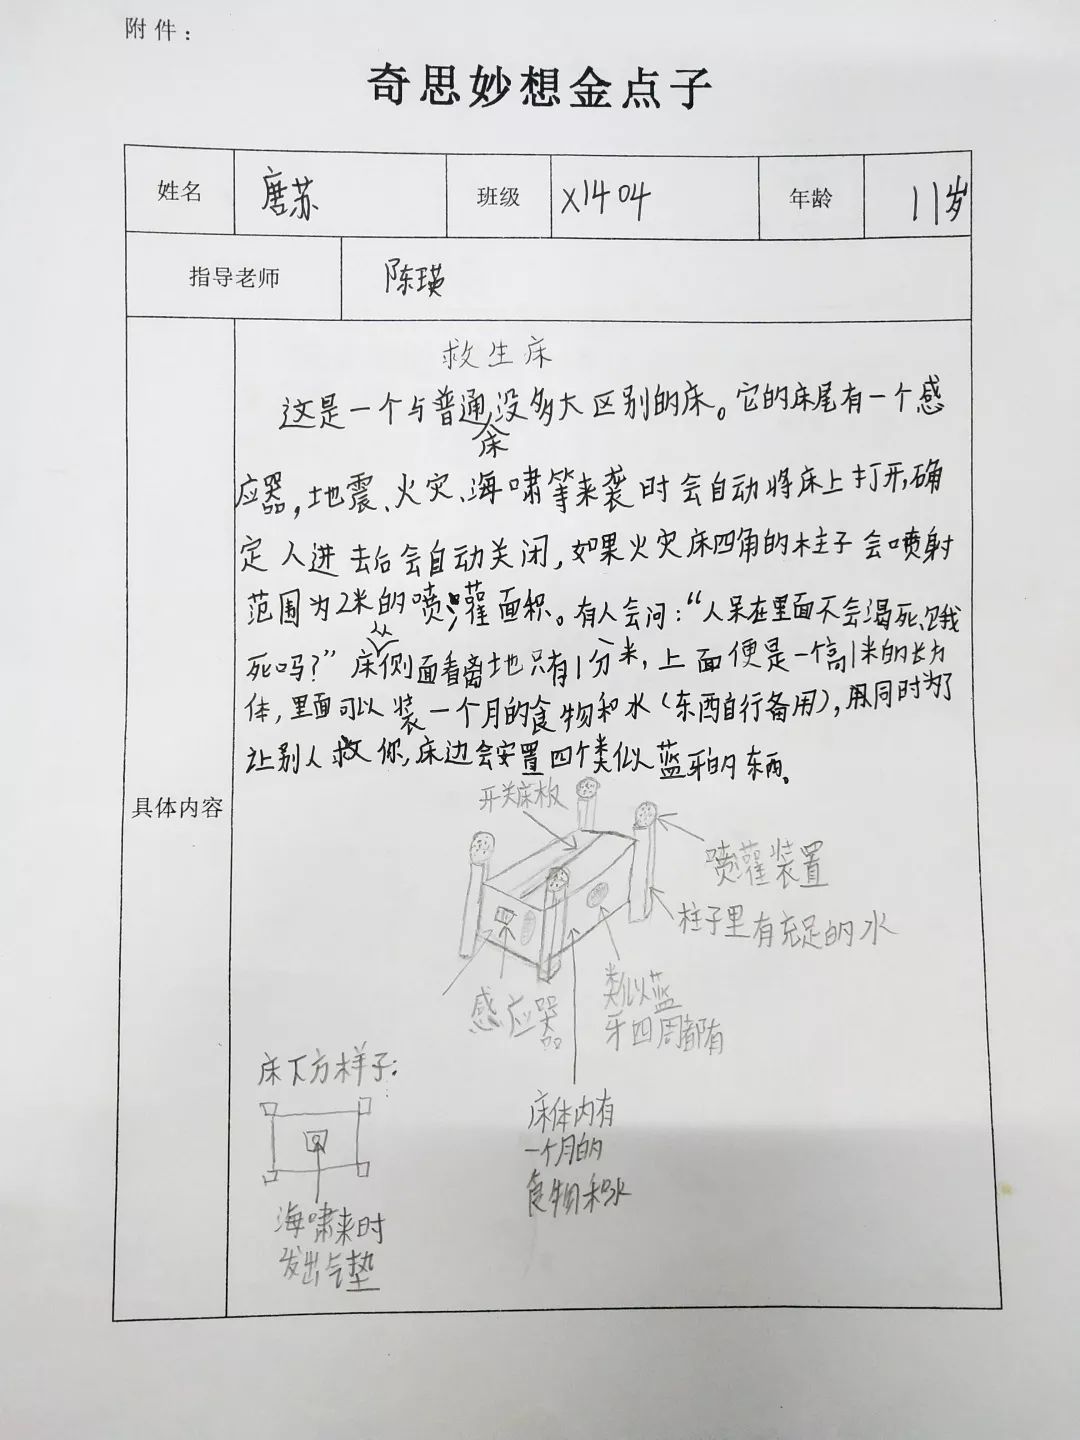 附件：
奇思妙想金点子
姓名 唐苏 班级 X1404 年龄 11岁
指导老师 陈瑛
具体内容
救生床
这是一个与普通床没多大区别的床。它的床尾有一个感
应器，地震、火灾、海啸等来袭时会自动将床上打开，确
定人进去后会自动关闭，如果火灾床四角的木主子会喷射
范围为2米的喷灌面积。有人会问：“人呆在里面不会渴死、饿
死吗？”床侧面看离地只有1分米，上面便是一个高1米的长方
体，里面可以装一个月的食物和水（东西自行备用），同时为了
让别人救你，床边会安置四个类似蓝牙的东西。
开关床板
喷灌装置
柱子里有充足的水
感应器
类似蓝
牙四周都有
床下方样子：
床体内有
一个月的
食物和水
海啸来时
发出气垫